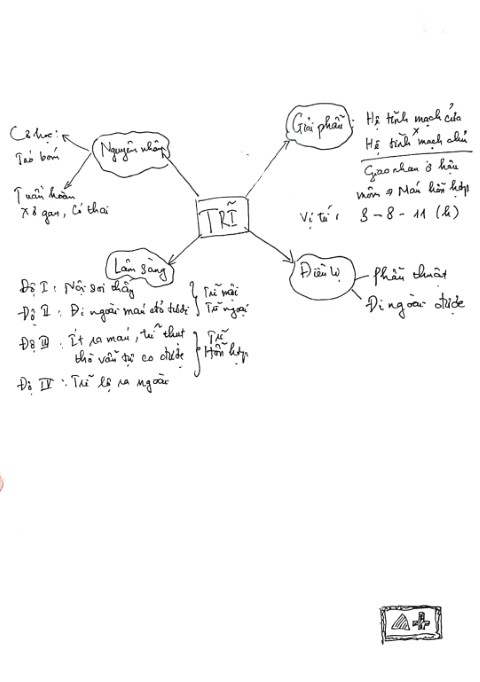 TRĨ
Nguyên nhân
Cơ học:
Táo bón
Tuần hoàn
Xơ gan, Có thai
Giải phẫu:
Hệ tĩnh mạch cửa
x
Hệ tĩnh mạch chủ
Giao nhau ở hậu
môn → Máu hỗn hợp
Vị trí: 3 - 8 - 11 (h)
Lâm sàng
Độ I: Nội soi thấy
Độ II: Đi ngoài máu đỏ tươi
Trĩ nội
Trĩ ngoại
Độ III: Ít ra máu, trĩ thụt
thò vẫn tự co được
Độ IV: Trĩ lộ ra ngoài
Trĩ
Hỗn hợp
Điều trị
Phẫu thuật
Đi ngoài được